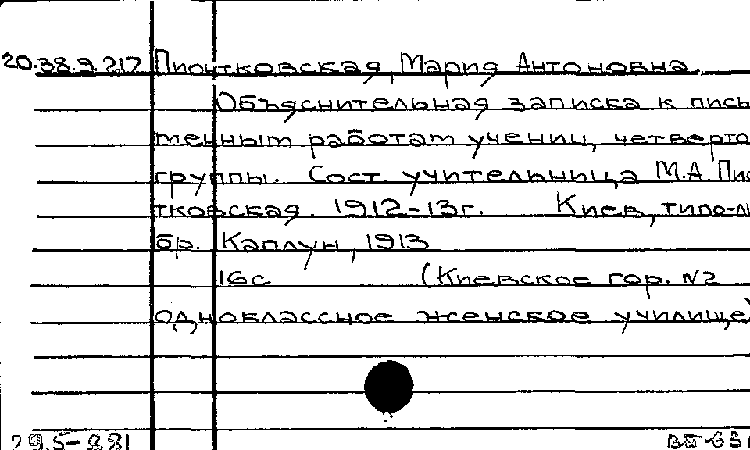 20.38.9.217 Пиотковская, Мария Антоновна.
Объяснительная записка к пись
менным работам учениц, четверто
группы. Сост учительница М.А Пио
тковская. 1912-13г. Киев, типо-л
бр. Каплун, 1913
16с (Киевское гор. №2
одноклассное женское училище)